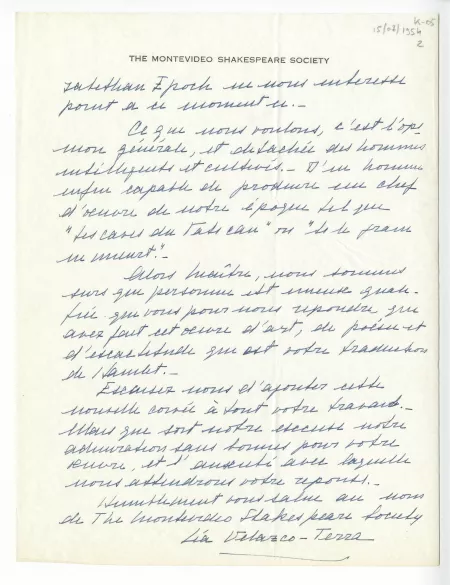 K-05
15/02/1954
2
THE MONTEVIDEO SHAKESPEARE SOCIETY
zabethan Epoch ne nous interesse
point a ce moment-ci.-
Ce que nous voulons, c'est l'opi-
nion générale, et detachée des hommes
intelligents et cultivés.- D'un homme
enfin capable de produire un chef
d'oeuvre de notre époque tel que
"Les caves du Vatican" ou "Si le grain
ne meurt."-
Alors Maître, nous sommes
surs que personne est mieux quali-
fié que vous pour nous repondre, qui
avez fait cet oeuvre d'art, de poesie et
d'éxactitude qui est votre traduction
de Hamlet.-
Excusez nous d'ajouter cette
nouvelle corvée à tout votre travail.-
Mais que soit notre excuse notre
admiration sans bornes pour votre
œuvre, et l'anxiété avec laquelle
nous attendrons votre reponse.-
Humblement vous salue au nom
de The Montevideo Shakespeare Society
Lía Velazco-Terra